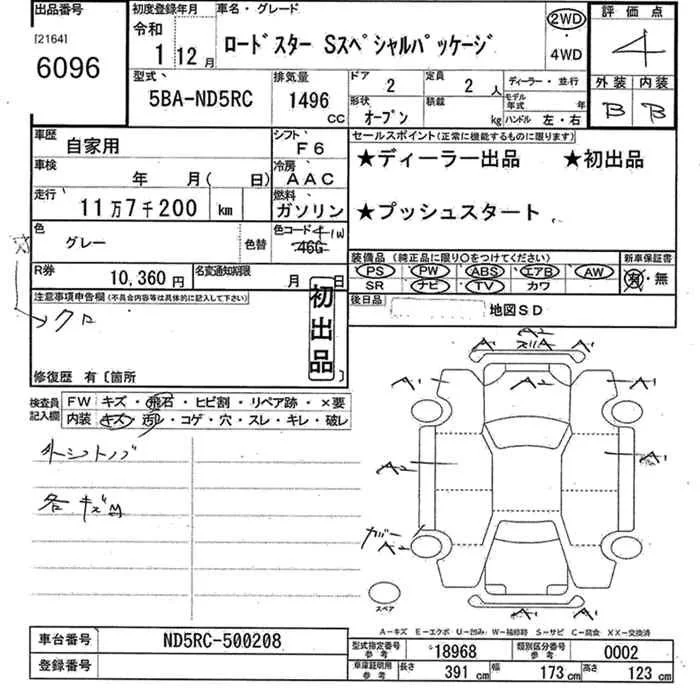 出品番号 初度登録年月 車名・グレード 2WD 評価点
[2164] 令和 ・ 4
6096 1 12月 ロードスター Sスペシャルパッケージ 4WD
型式 排気量 ドア 定員 ディーラー・並行 外装 内装
5BA-ND5RC 1496 CC 2 2人 モデル年式 年 B B
形状 オープン 積載 kg ハンドル 左・右
車歴 自家用 シフト F6 セールスポイント(正常に機能するものに限ります)
車検 年 月( 日) 冷房 AAC ★ディーラー出品 ★初出品
走行 11万7千200 km 燃料 ガソリン ★プッシュスタート
色 グレー 色替 色コード 41W 46G
装備品(純正品に限り○をつけてください) 新車保証書
PS PW ABS エアB AW 有・無
SR ナビ TV カワ
R券 10,360円 名変通知期限 月 日
後日品 地図SD
注意事項申告欄(不具合内容等は具体的に記入して下さい)
クロ
初出品
修復歴 有〔箇所
検査員記入欄 FW キズ・飛石・ヒビ割・リペア跡・×要
内装 キズ・汚レ・コゲ・穴・スレ・キレ・破レ
A2
A1 A1 A1 A1
A2 A1
カバー A2
スペア
A-キズ E-エクボ U-凹み W-補修跡 S-サビ C-腐食 XX-交換済
車台番号 ND5RC-500208
登録番号
型式指定番号 参考 18968 類別区分番号 参考 0002
車庫証明用 参考 長さ 391cm 幅 173cm 高さ 123cm